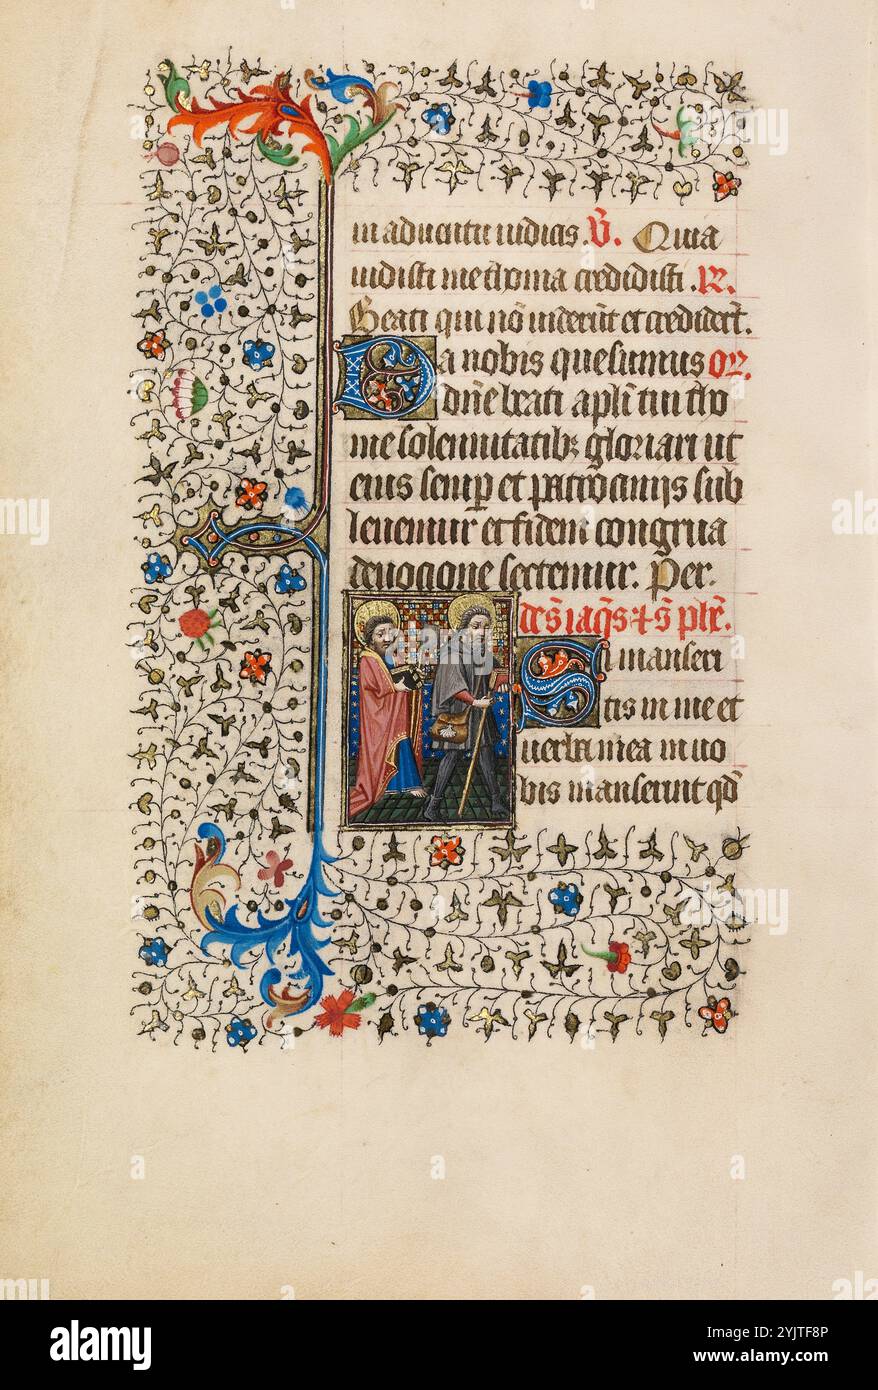 in aduentu iudicis. V̄. Quia
uidisti me thoma credidisti. R.
Beati qui nō uiderūt et crediderūt.
Da nobis quesumus or.
dn̄e beati apl̄i tui tho
me solennitatibꝫ gloriari ut
eius semp̄ et patrocinijs sub
leuemur et fidem congrua
deuocione sectemur. Per.
des iaq̄s et s̄ phē.
Si manseri
tis in me et
uerba mea in uo
bis manserint qd̄
alamy
Image ID: 2YJTF8P
www.alamy.com